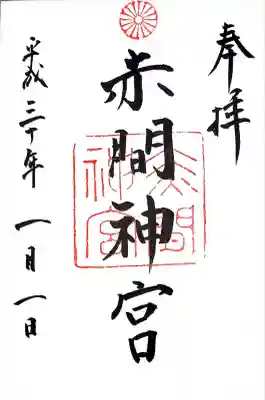 奉拝
赤間神宮
赤間神宮
平成三十年 一月一日